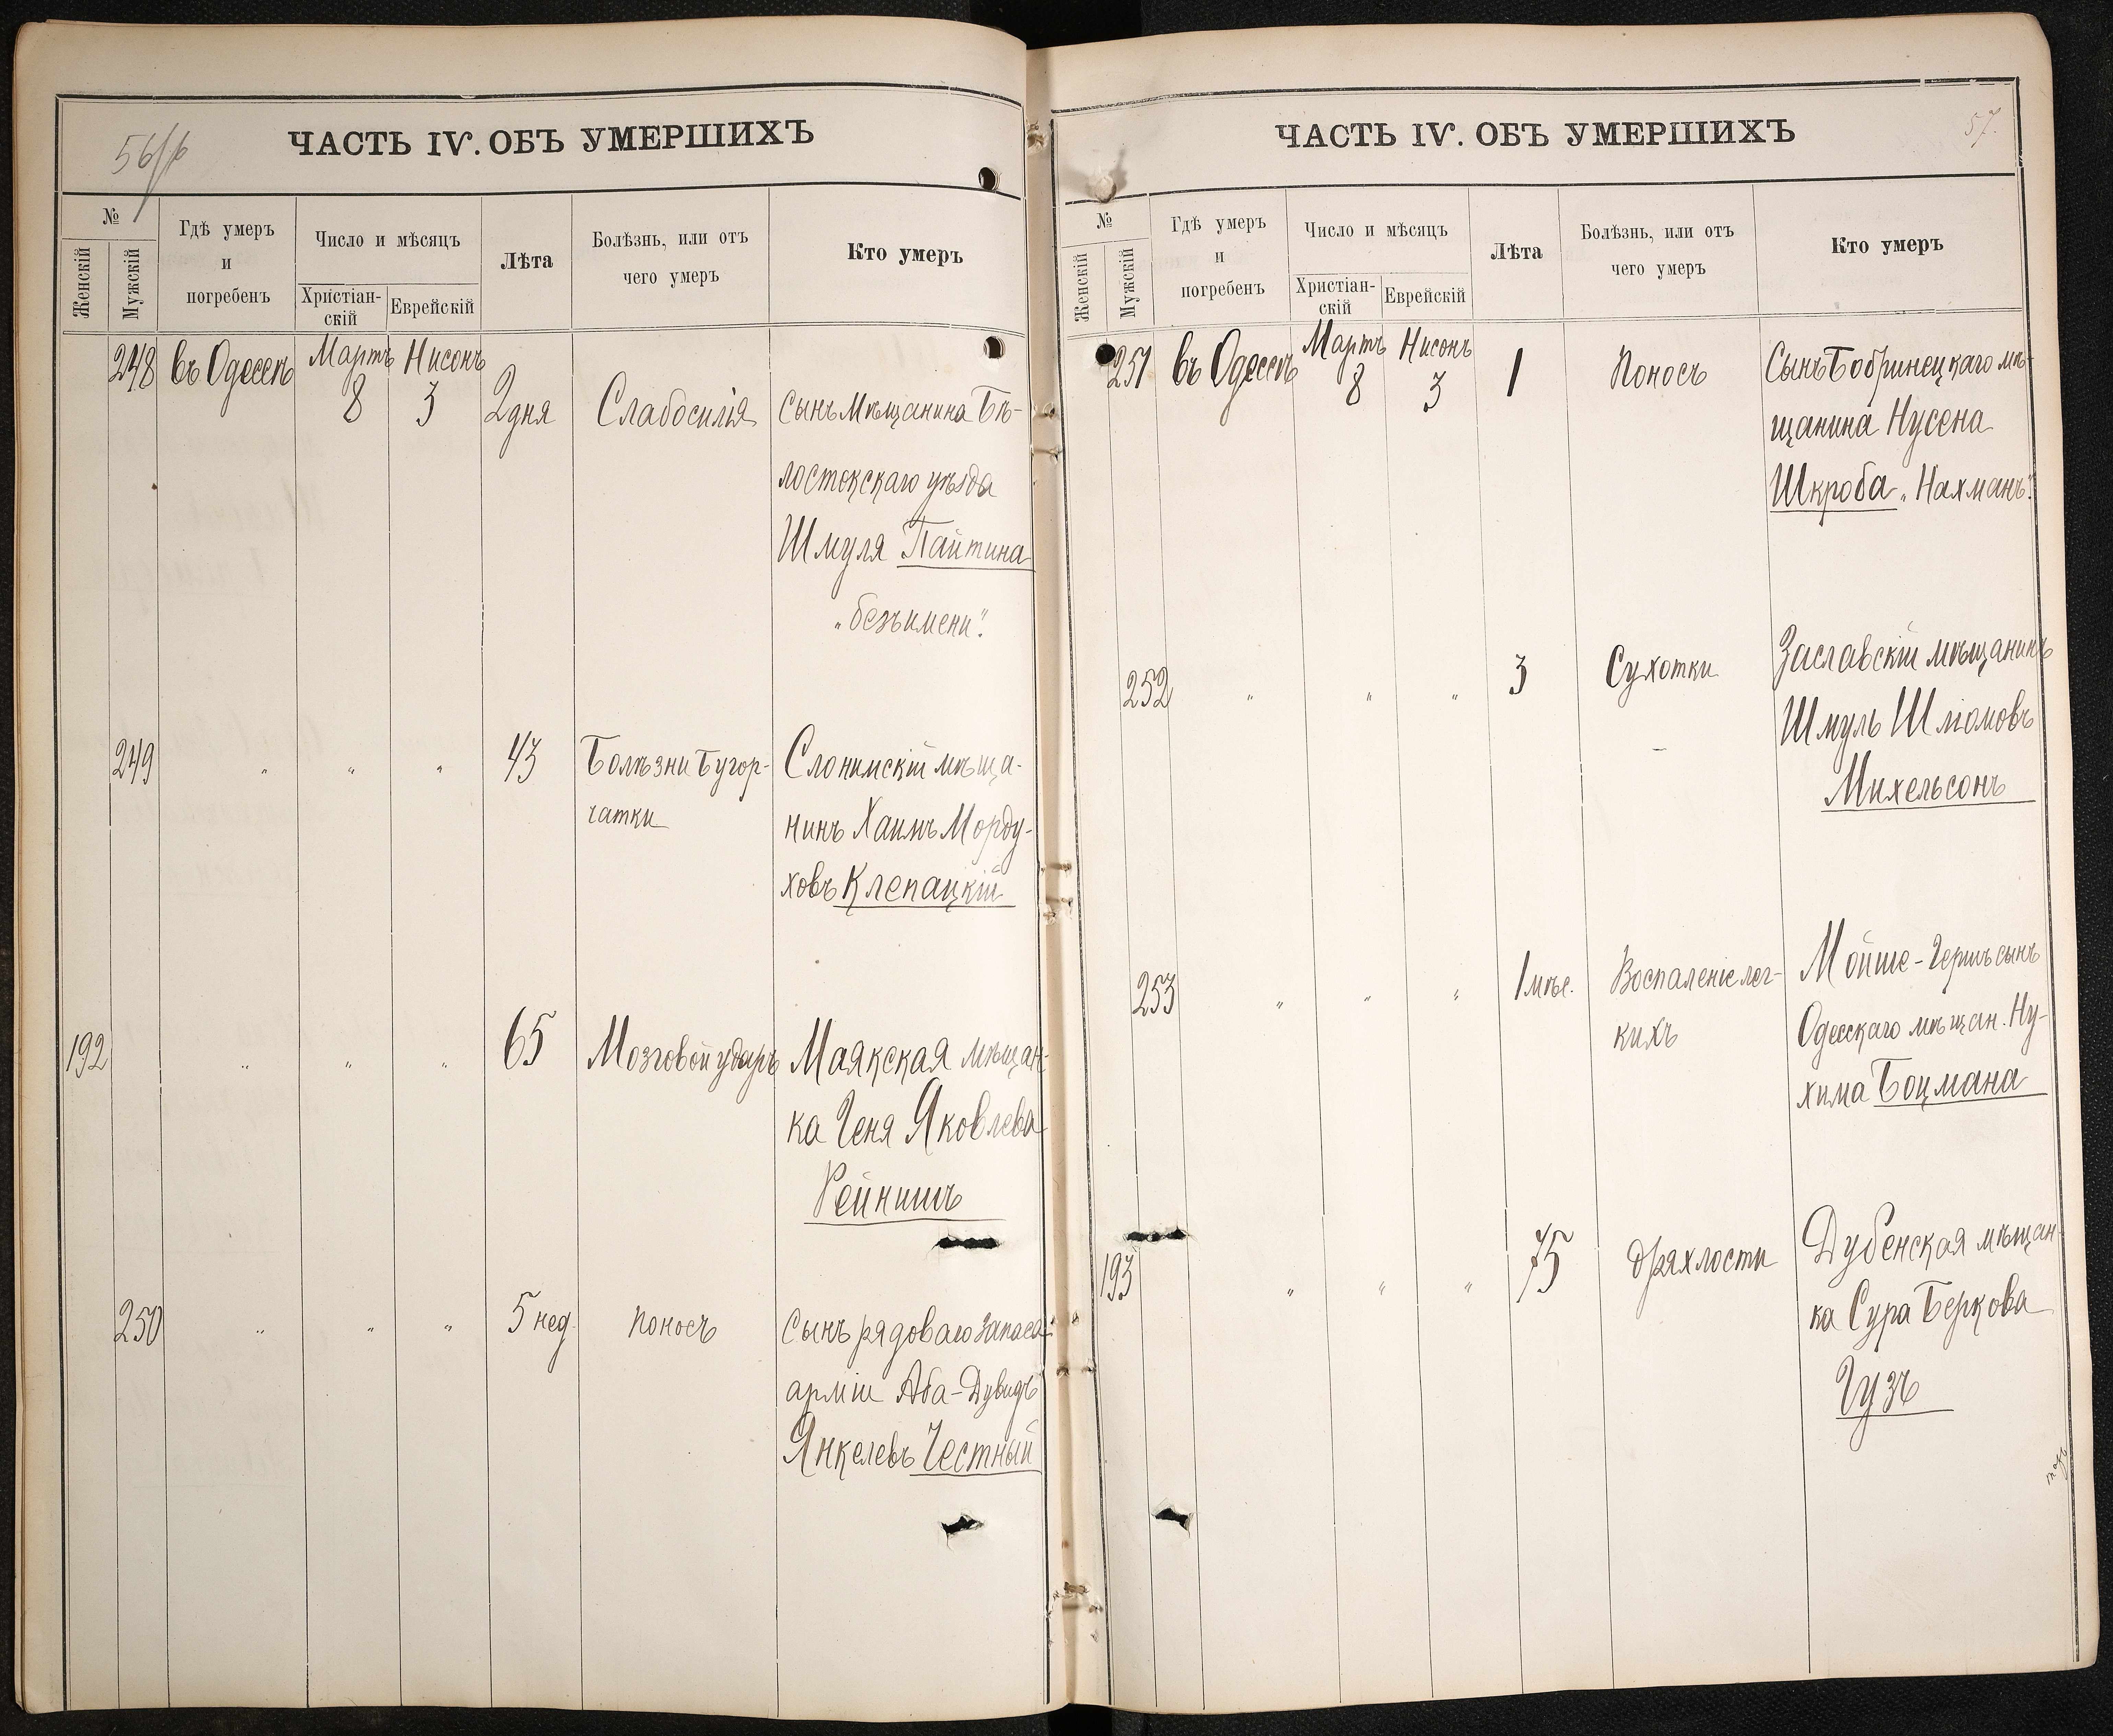 56/б
ЧАСТЬ IV. ОБЪ УМЕРШИХЪ
№
Женскій
Мужскій
Гдѣ умеръ
и
погребенъ
Число и мѣсяцъ
Христіан-
скій
Еврейскій
Лѣта
Болѣзнь, или отъ
чего умеръ
Кто умеръ
248 въ Одессѣ Мартъ Нисонъ
8 3 2 дня Слабосилія Сынъ Мѣщанина Бѣ-
лостокскаго уѣзда
Шмуля Пайтина
„безъ имени“.
249 " " " 43 Болѣзни Бугор- Слонимскій мѣща-
чатки нинъ Хаимъ Морду-
ховъ Клепацкій
192 " " " 65 Мозговой ударъ Маякская мѣщан-
ка Геня Яковлева
Рейнишъ
250 " " " 5 нед. поносъ Сынъ рядоваго запаса
арміи Аба-Дувидъ
Янкелевъ Честный
57.
ЧАСТЬ IV. ОБЪ УМЕРШИХЪ
№
Женскій
Мужскій
Гдѣ умеръ
и
погребенъ
Число и мѣсяцъ
Христіан-
скій
Еврейскій
Лѣта
Болѣзнь, или отъ
чего умеръ
Кто умеръ
251 въ Одессѣ Мартъ Нисонъ
8 3 1 Поносъ Сынъ Бобринецкаго мѣ-
щанина Нусена
Шкроба „Нахманъ“.
252 " " " 3 Сухотки Заславскій мѣщанинъ
Шмуль Шліомовъ
Михельсонъ
253 " " " 1 мѣс. Воспаленіе лег- Мойше-Гершъ сынъ
кихъ Одесскаго мѣщан. Ну-
хима Боцмана
193 " " " 75 дряхлости Дубенская мѣщан-
ка Сура Беркова
Гузъ